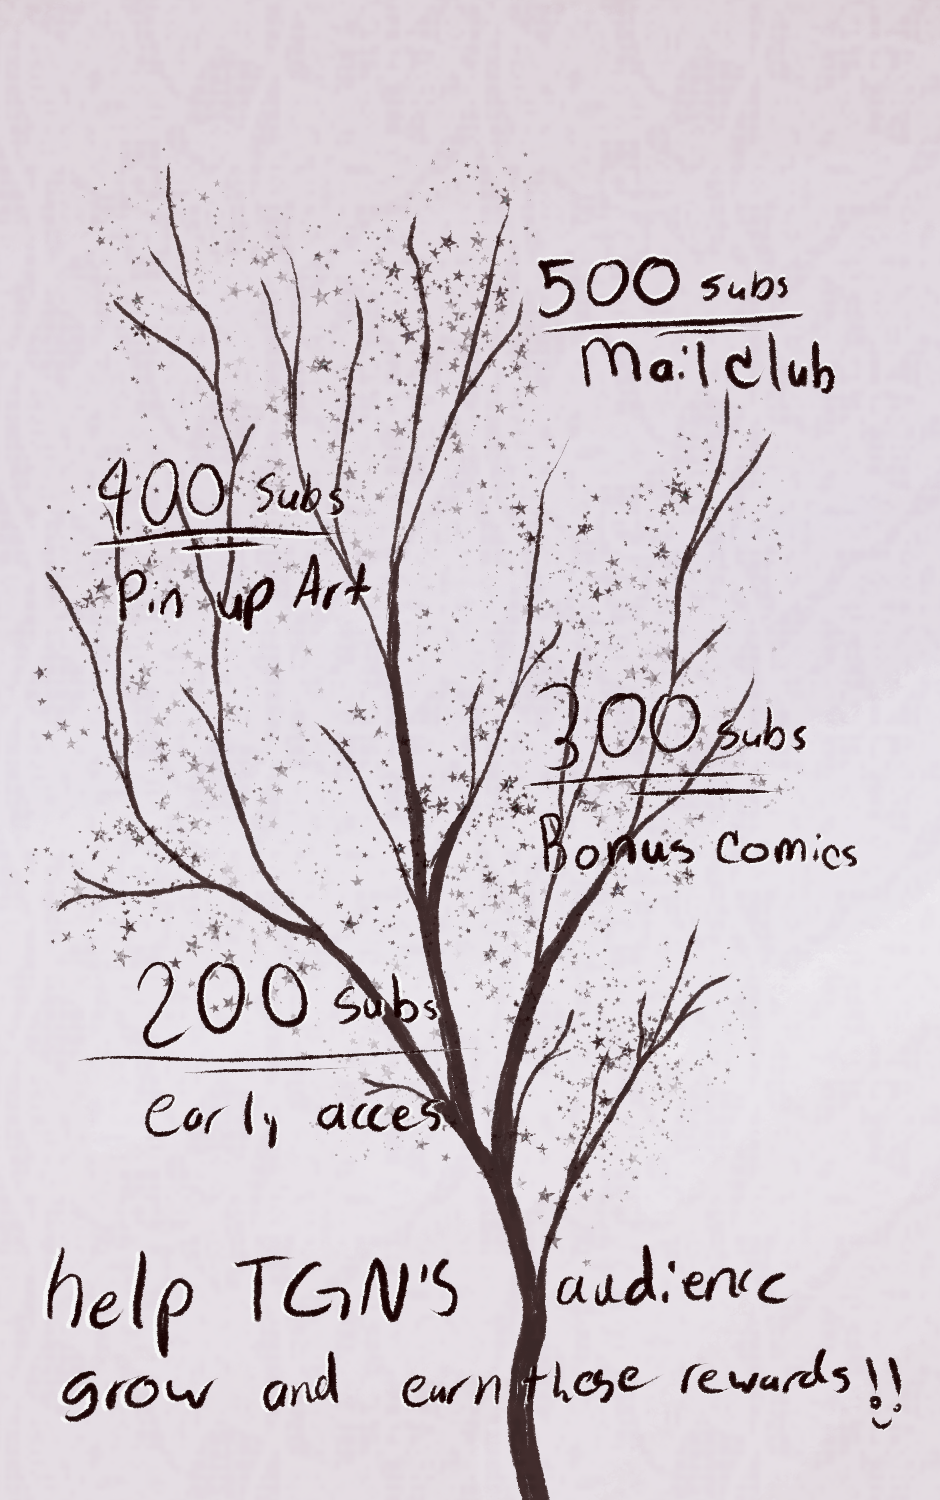 500 subs
Mail club
400 subs
Pin up Art
300 subs
Bonus Comics
200 subs
early acces
help TGN'S audience
grow and earn these rewards!!